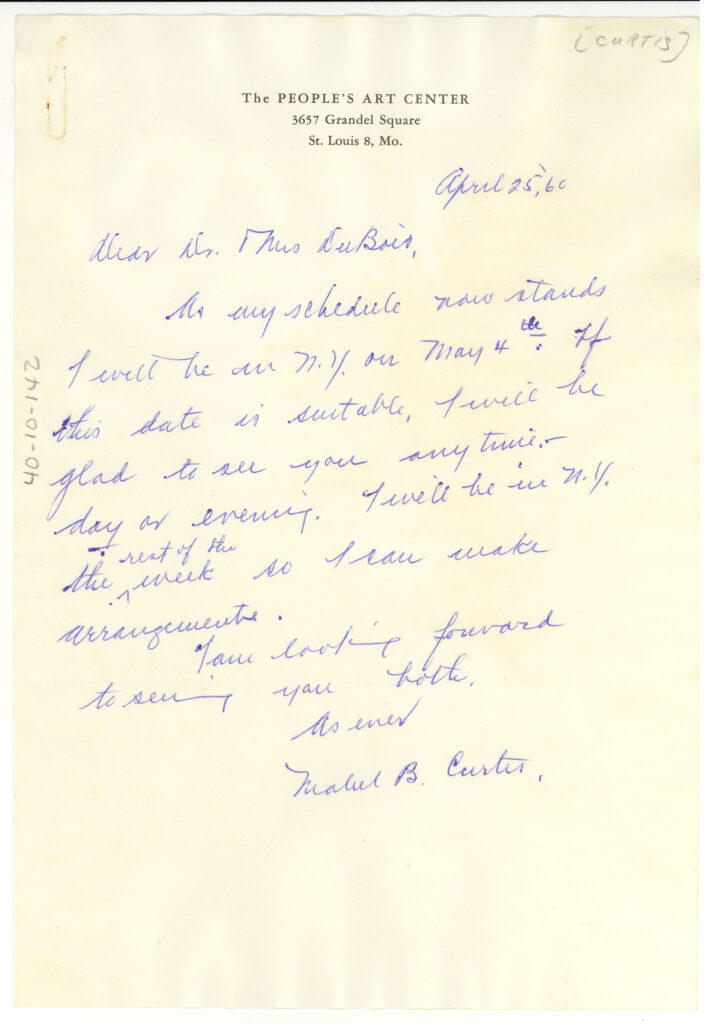 (CURTIS)
The PEOPLE'S ART CENTER
3657 Grandel Square
St. Louis 8, Mo.
April 25, 60
Dear Dr. & Mrs DuBois,
As my schedule now stands
I will be in N.Y. on May 4th. If
this date is suitable, I will be
glad to see you any time -
day or evening. I will be in N.Y.
rest of the
the week so I can make
arrangements.
I am looking forward
to seeing you both.
As ever
Mabel B. Curtis.
40-10-142